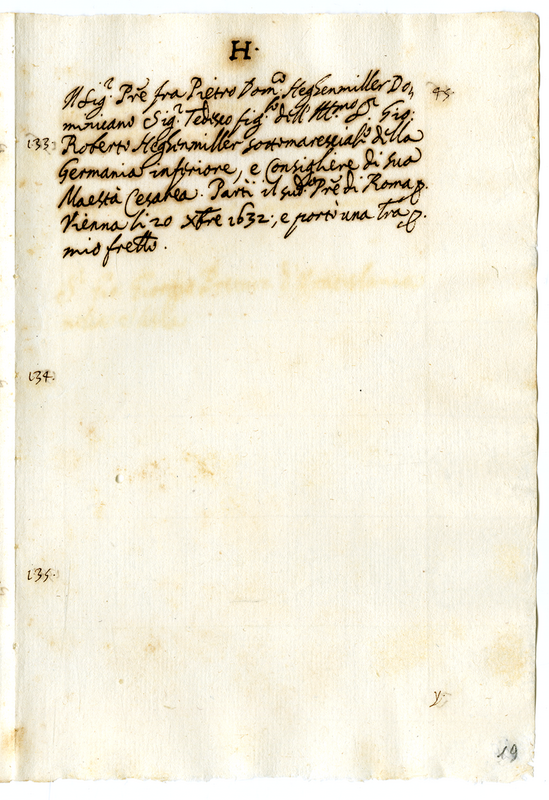 H.
Il Sig.r P̃re fra Pietro Dom.co Heghenmiller Do,, 45.
minicano Sig.r Tedesco fig.lo dell' Ill.mo S.r Gio:
133. Roberto Heghenmiller sottomarescial.o della
Germania inferiore, e Consigliere di sua
Maestà Cesarea. Partì il sud.o P̃re di Roma p.
Vienna li 20 Xbre 1632; e portò una lr̃a p.
mio frello.
134.
135.
y.
19